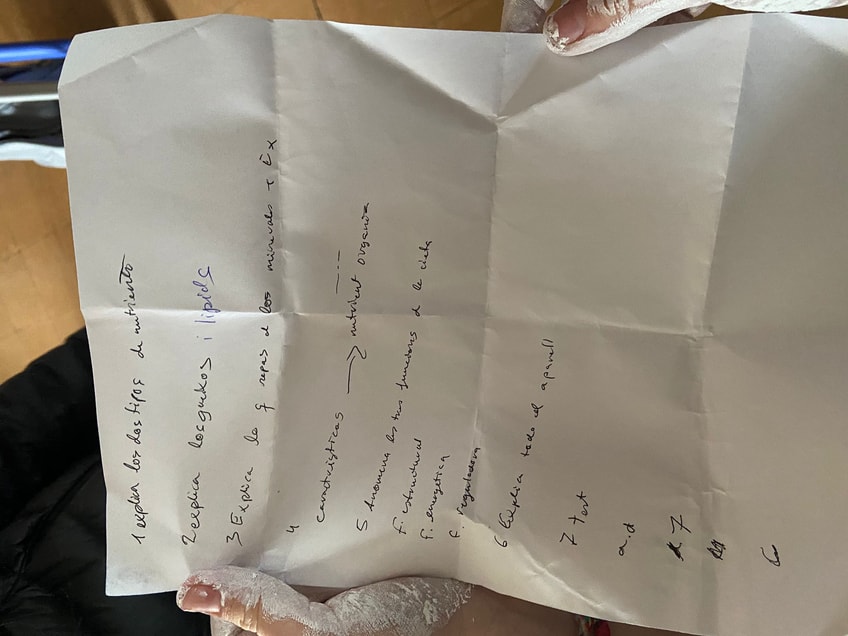 1 explica los dos tipos de nutriento
2 explica los gukos i lipids
3 Explica la f repas a los minerales i Ex
4 caractristicas → nutrient organia
5 Anomena los tres funciones de le dieta
f. estructural
f. energética
f. reguladora
6 Explica todo el aparell
7 test
a.d
7